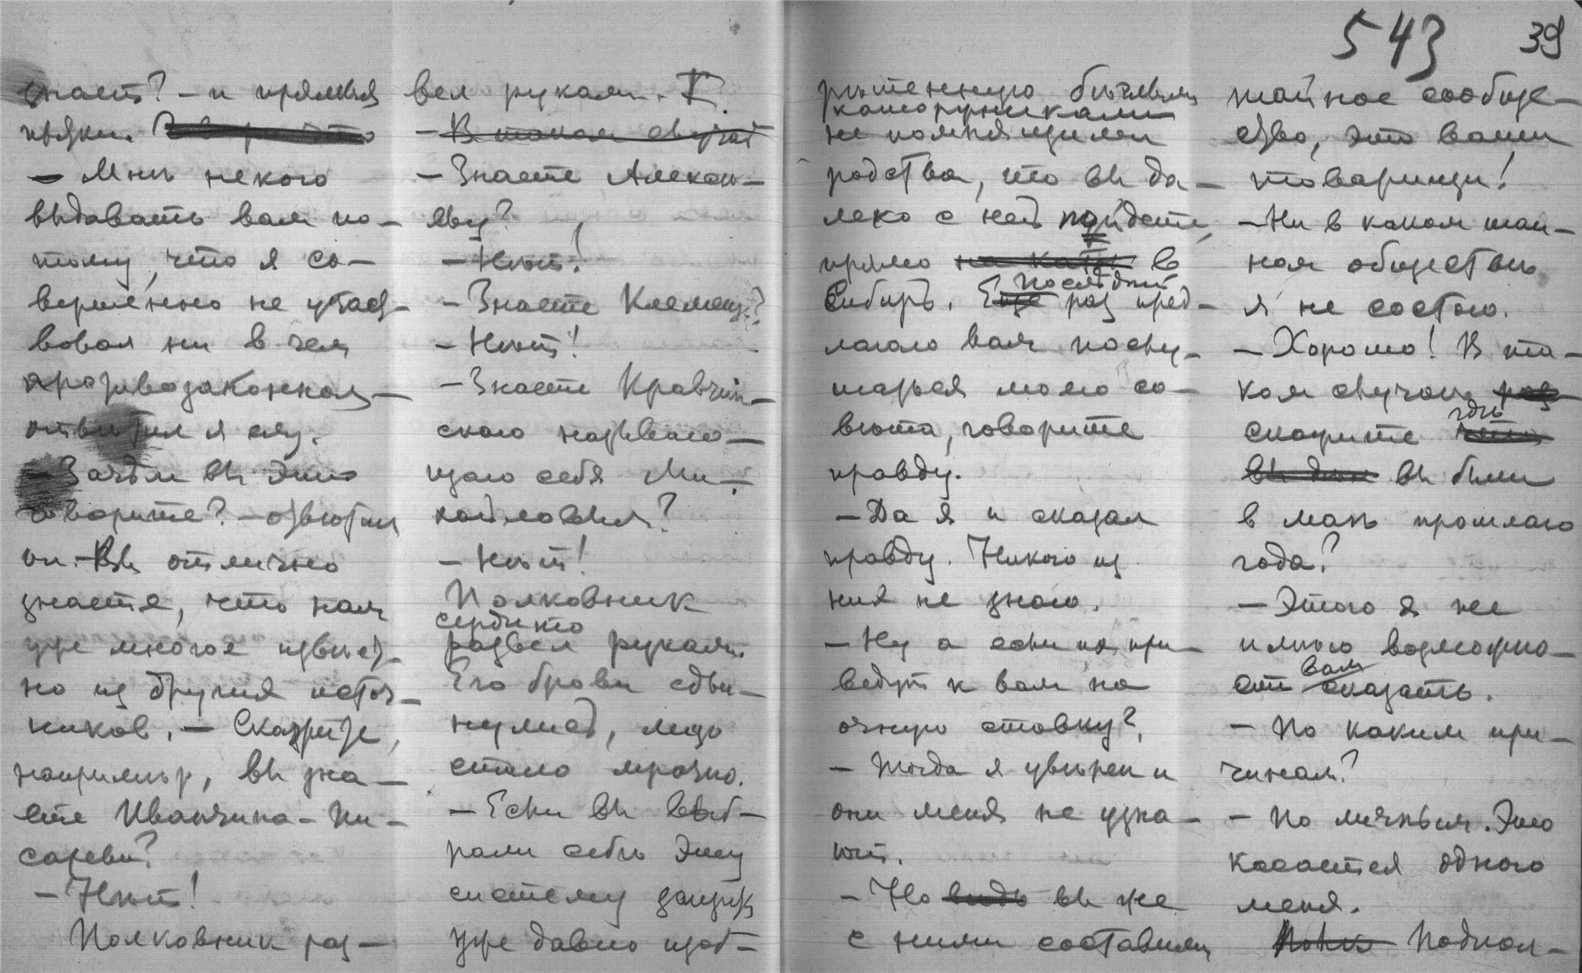 543 39
знаетъ? – и прямыя
пряки.
– Мнѣ некого
выдавать вам по-
тому, что я со-
вершенно не участ-
вовал ни в чем
противозаконном, –
отвѣтил я ему.
– Зачѣм вы это
говорите? – отвѣтил
он. – Вы отлично
знаете, что нам
уже многое извѣст-
но из других источ-
ников. – Скажите,
напримѣр, вы зна-
ете Иванчина-Пи-
сарева?
– Нѣт!
Полковник раз-
вел руками.
– В таком случаѣ
– Знаете Алексѣ-
еву?
– Нѣт!
– Знаете Клеменца?
– Нѣт!
– Знаете Кравчин-
скаго называю-
щаго себя Ми-
хайловым?
– Нѣт!
Полковник
сердито
развел руками.
Его брови сдви-
нулись, лицо
стало мрачно.
– Если вы выб-
рали себѣ эту
систему защиты
уже давно изоб-
рѣтенную бѣглыми
каторжниками
не помнящими
родства, что вы да-
леко с ней пойдете,
прямо на кат в
последній
Сибирь. Еще раз пред-
лагаю вам послу-
шаться моего со-
вѣта, говорите
правду.
– Да я и сказал
правду. Никого из
них не знаю.
– Ну а если их при-
ведут к вам на
очную ставку?
– Тогда я увѣрен и
они меня не узна-
ют.
– Но вѣдь вы же
с ними составляли
тайное сообще-
ство, это ваши
товарищи!
– Ни в каком тай-
ном обществѣ
я не состою.
– Хорошо! В та-
ком случаѣ раз
гдѣ
скажите
вы были
в маѣ прошлаго
года?
– Этого я не
имѣю возможно-
вам
сти сказать.
– По каким при-
чинам?
– По личным. Это
касается одного
меня.
Подпол-